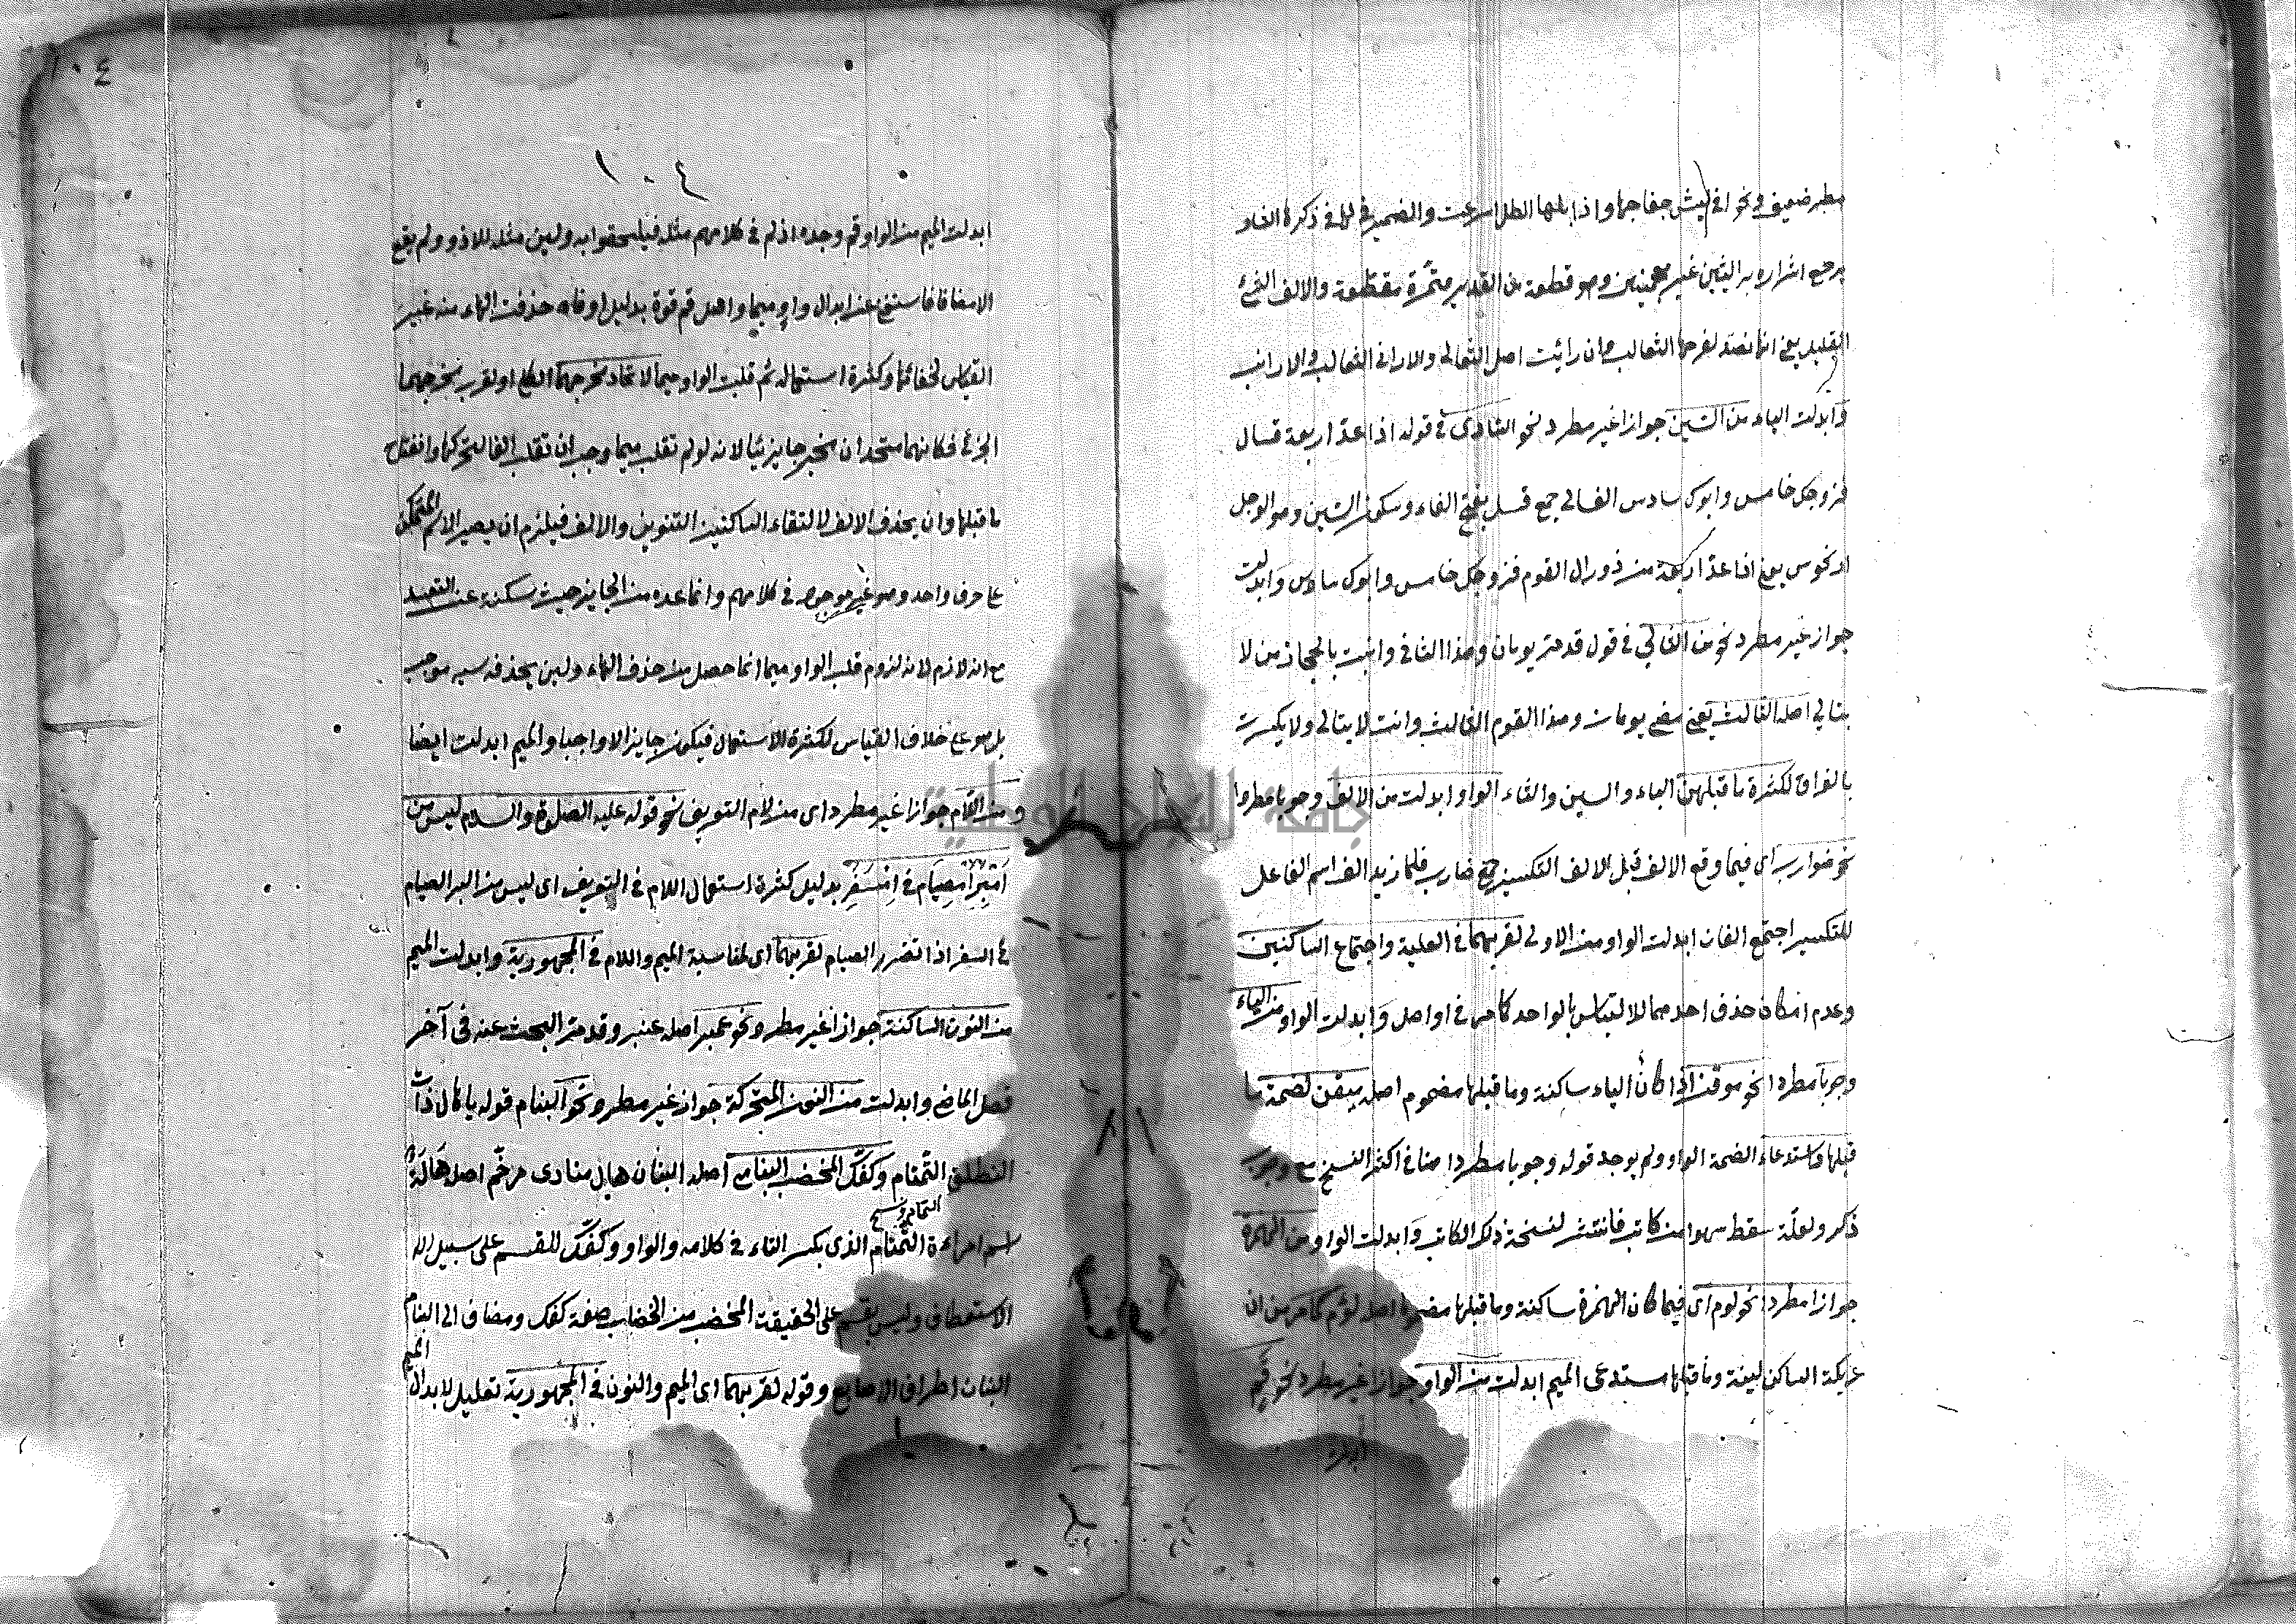 مطر ضعيف ونحو افي ليث جفاجها واذا بلها الطل اسرعت والضمير في لها في ذكره الفاو
يرجع اشرار به الثين غير وهو قطعة من القدير متمرة مقطعة والالف الفرخ
القليل يعني انها نصد لفرحها الثعالب وان رائت اصل الثعالي والاراني الثعالب والارانب
وابدلت الياء من السين جوازا غير مطرد نحو السادى في قوله اذا عد اربعة فسال
فزوجك خامس وابوك سادس الفسال جمع فسل بفتح الفاء وسكون السين وهو الرجل
يعني اذا عد اربعة من ذو رال القوم فزوجك خامس وابوك سادس وابدلت
جواز غير مطرد نحو من الثالي في قول قد مر يومان وهذا الثاني وانت بالهجاز من لا
يتالي اصله الثالث يعني مضى يومان وهذا القوم الثالث وانت لا يتالي ولا يكرت
بالفراق لكثرة ما قبلهن الباء والسين والثاء الواو ابدلت من الالف وجوبا مطردا
نحو ضوارب اى فيما وقع الالف قبل الالف التكسير جمع ضارب فلما زيد الف اسم الفاعل
للتكسير اجتمع الفان ابدلت الواو من الاولى لقربهما في العلية واجتماع الساكنين
وعدم امكان حذف احدهما لالتباس بالواحد كما مر في اواصل وابدلت الواو من الياء
وجوبا مطردا نحو موقن اذا كان الياء ساكنة وما قبلها مضموم اصله ميقن لضمة ما
قبلها واستدعاء الضمة الواو ولم يوجد قوله وجوبا مطردا هنا في اكثر النسخ مع وجوب
ذكر ولعلة سقط سهوا من كاتب فانتشر لنسخة ذلك الكاتب وابدلت الواو من الهمزة
جوازا مطردا نحو لوم اى فيما كان الهمزة ساكنة وما قبلها مضموما اصله لؤم كما مر من ان
عريكة الساكن لينة وما قبلها استدعى الميم ابدلت من الواو جوازا غير مطرد نحو فم
ابدلت
١٠٤
١٠٤
ابدلت الميم من الواو فم وحده اذ لم في كلامهم مثله فيلحقوا به وليس مثله للاذوو ولم يقع
الا مضافا فاستغنى عن ابدال واو ميما واصل فم فوه بدليل افواه حذفت الهاء منه غير
القياس لخفائها وكثرة استعماله ثم قلبت الواو ميما لاتحاد مخرجهما الكلى او لقرب مخرجهما
الجزئى فكانهما متحدان مخرجا يزثيا لانه لو لم تقلب ميما وجب ان تقلب الفا لتحركها وانفتاح
ما قبلها وان يحذف الالف لالتقاء الساكنين التنوين والالف فيلزم ان يصير الاسم المتمكن
على حرف واحد وهو غير موجود في كلامهم وانما عده من الجايز حيث سكت عن التقييد
مع انه لازم لانه لزوم قلب الواو ميما انما حصل من حذف الهاء وليس بحذفه سبب موجب
بل هو على خلاف القياس لكثرة الاستعمال فيكون جايزا لا واجبا والميم ابدلت ايضا
ومن اللام جوازا غير مطرد اى من لام التعريف نحو قوله عليه الصلوة والسلام ليس من
امبر امصيام في امسفر بدليل كثرة استعمال اللام في التعريف اى ليس من البر الصيام
في السفر اذا تضرر الصيام لقربهما اى لمناسبة الميم واللام في المجهورية وابدلت الميم
من النون الساكنة جوازا غير مطرد نحو عمبر اصله عنبر وقد مر البحث عنه في آخر
فصل الماضى وابدلت من النون المتحركة جواز غير مطرد نحو البنام قوله يا هال ذات
المنطلق التمتام وكفك المخضب البنام اصله البنان هال منادى مرخم اصله هالة
التمتام نسخ
اسم امراءة التمتام الذى يكسر التاء في كلامه والواو وكفك للقسم على سبيل الله
الاستعطاف وليس بقسم على الحقيقت المخضب من الخضاب صفة كفك ومضاف الى البنام
البنان اطراف الاصابع وقوله لقربهما اى الميم والنون في المجهورية تعليل لابدال
الميم